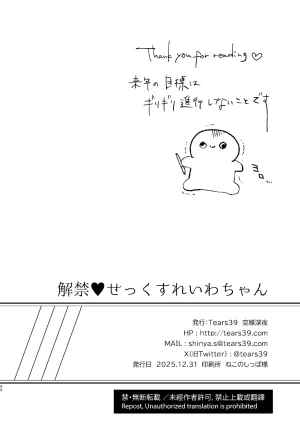 Thank you for reading ♡
来年の目標は
ギリギリ進行しないことです
ヨロ…
解禁♥せっくすれいわちゃん
発行：Tears39 空維深夜
HP : http://tears39.com
MAIL : shinya.s@tears39.com
X(旧Twitter) : @tears39
発行日 2025.12.31 印刷所 ねこのしっぽ様
禁・無断転載 ／未經作者許可, 禁止上載或翻譯
Repost, Unauthorized translation is prohibited